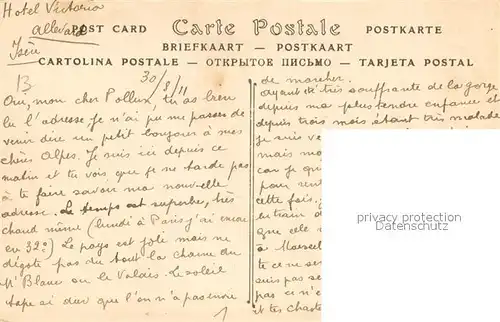 Hotel Victoria
Allevard
Isère
POST CARD Carte Postale POSTKARTE
BRIEFKAART — POSTKAART
CARTOLINA POSTALE — ОТКРЫТОЕ ПИСЬМО — TARJETA POSTAL
13
30/8/11
Oui, mon cher Pollux, tu as bien
lu l'adresse, je n'ai pu me passer de
venir dire un petit bonjour à mes
chères Alpes. Je suis ici depuis ce
matin et tu vois que je ne tarde pas
à te faire savoir ma nouvelle
adresse. Le temps est superbe, très
chaud même (lundi à Paris j'ai encore
eu 32°) Le pays est joli mais ne
dégote pas du tout la chaîne du
Mt Blanc ou le Valais. Le soleil
tape si dur que l'on n'a pas envie
1
de marcher.
Ayant été très souffrante de la gorge
depuis ma plus tendre enfance et
depuis trois mois étant très malade
je suis ve
mais mo
car je qu
pour ren
cette fois, j
le train d
que elle
à Marseil
te ce ne se
suis pas se
pas ci n'e
et tes chaste
privacy protection
watermark